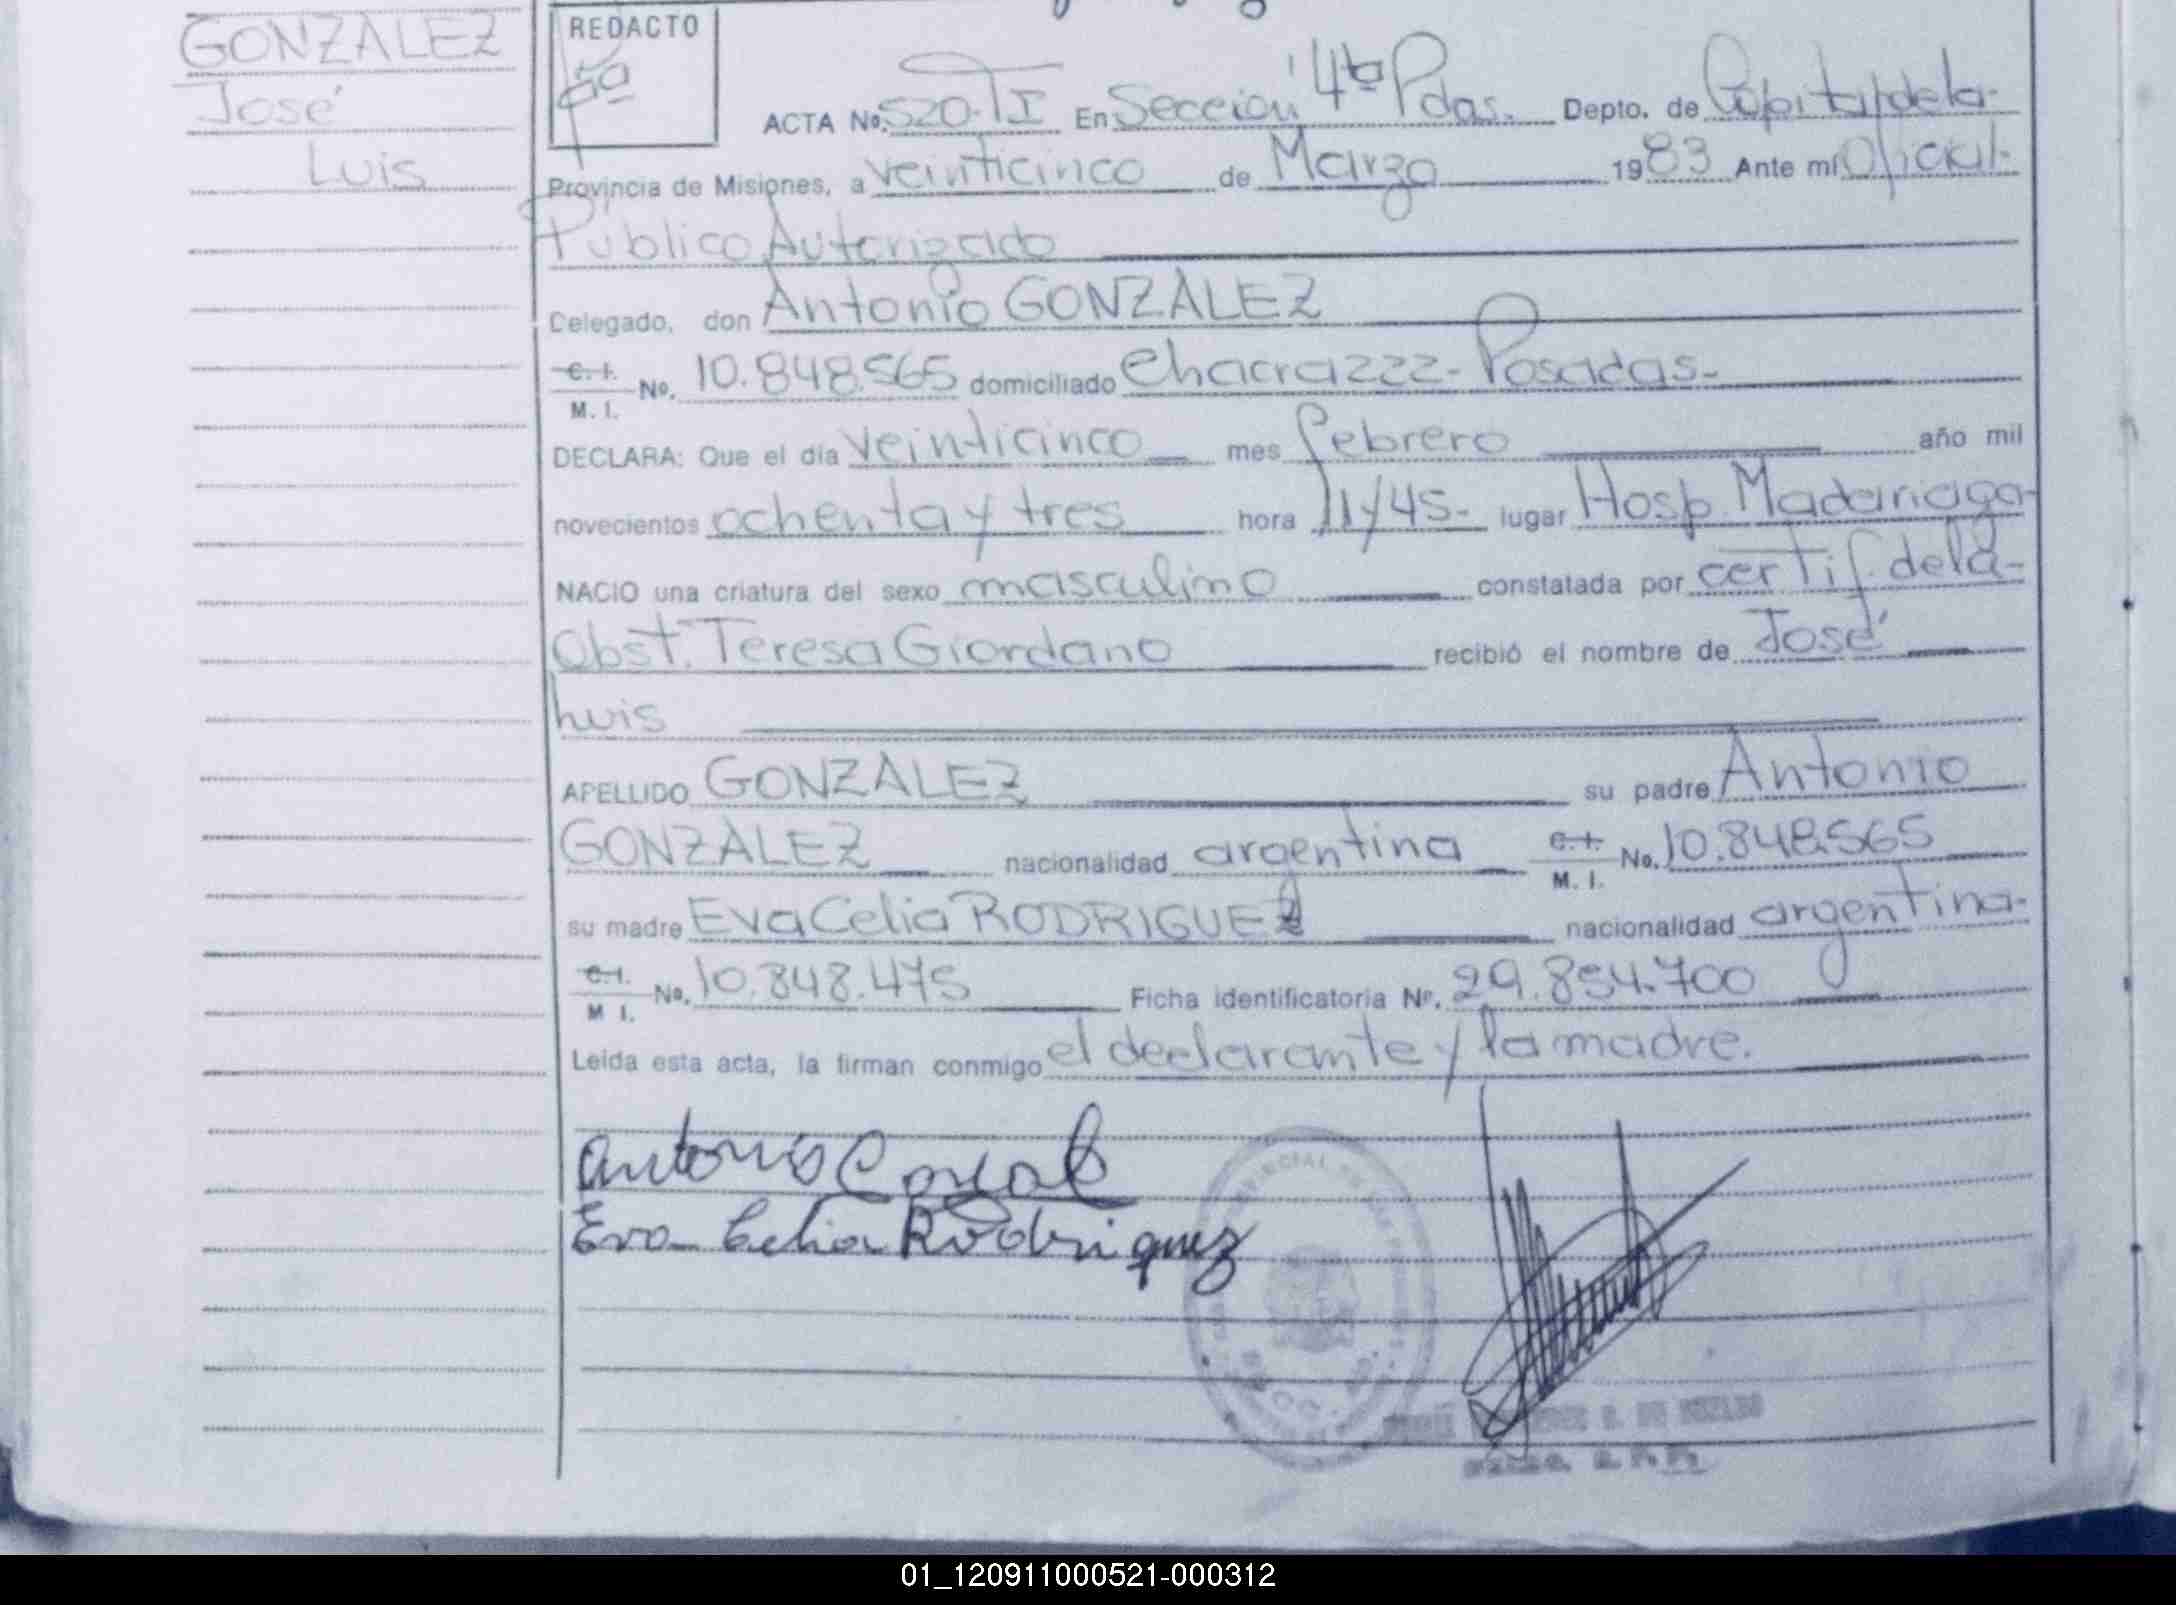 GONZALEZ
José
Luis
REDACTO
ACTA No. 520-TI En Sección 4ta Pdas. Depto. de Capital de la
Provincia de Misiones, a veinticinco de Marzo 1983 Ante mí Oficial
Público Autorizado
Celegado, don Antonio GONZALEZ
C.I. M.I. No. 10.848.565 domiciliado Chacra 222 - Posadas -
DECLARA: Que el día veinticinco mes febrero año mil
novecientos ochenta y tres hora 11y45- lugar Hosp. Madariaga
NACIO una criatura del sexo masculino constatada por certif. de la
Obst. Teresa Giordano recibió el nombre de José
Luis
APELLIDO GONZALEZ su padre Antonio
GONZALEZ nacionalidad argentina C.I. M.I. No. 10.848.565
su madre Eva Celia RODRIGUEZ nacionalidad argentina-
C.I. M.I. No. 10.848.475 Ficha identificatoria Nº. 29.854.700
Leida esta acta, la firman conmigo el declarante y la madre.
Antonio
Eva Celia Rodriguez
01_120911000521-000312